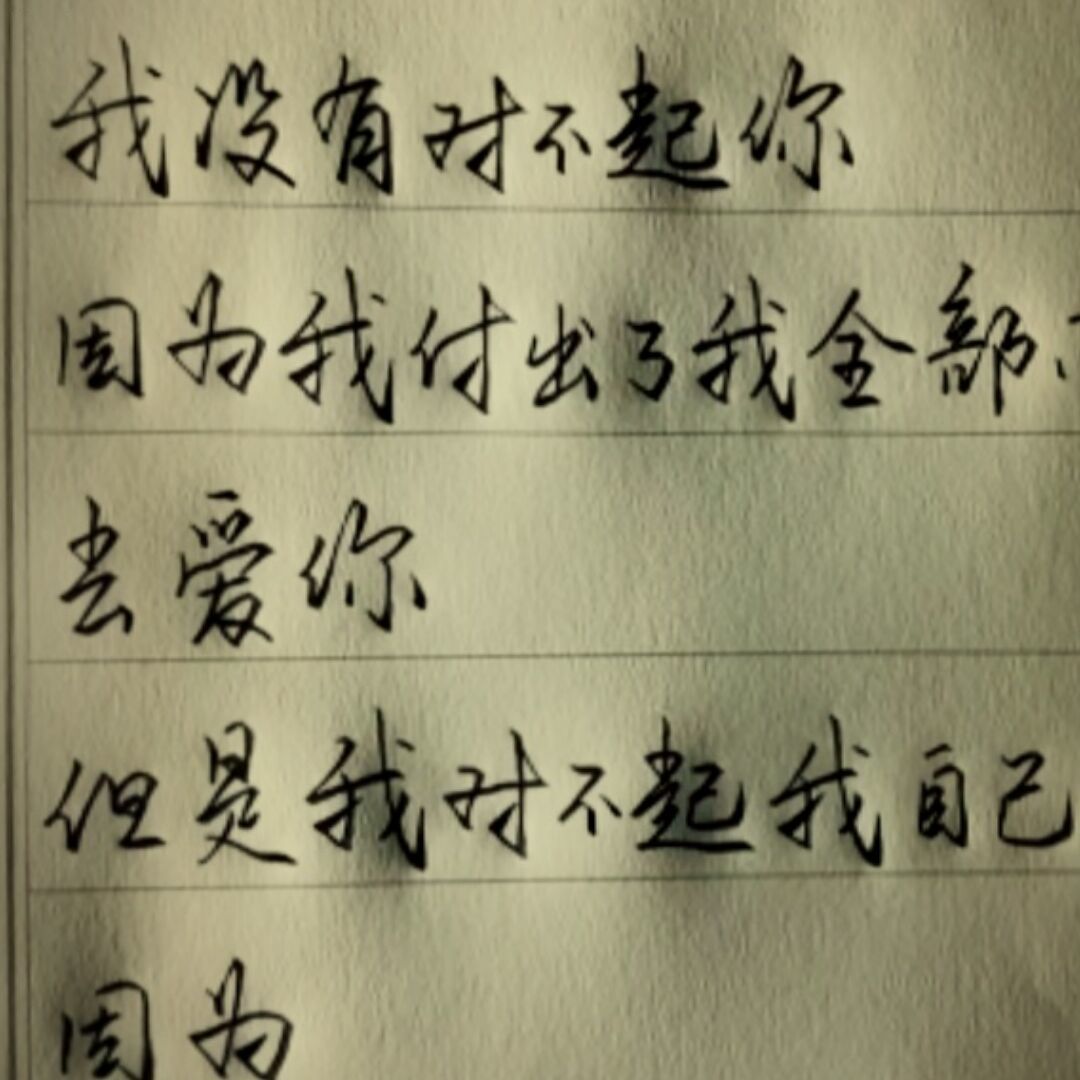 我没有对不起你
因为我付出了我全部
去爱你
但是我对不起我自己
因为